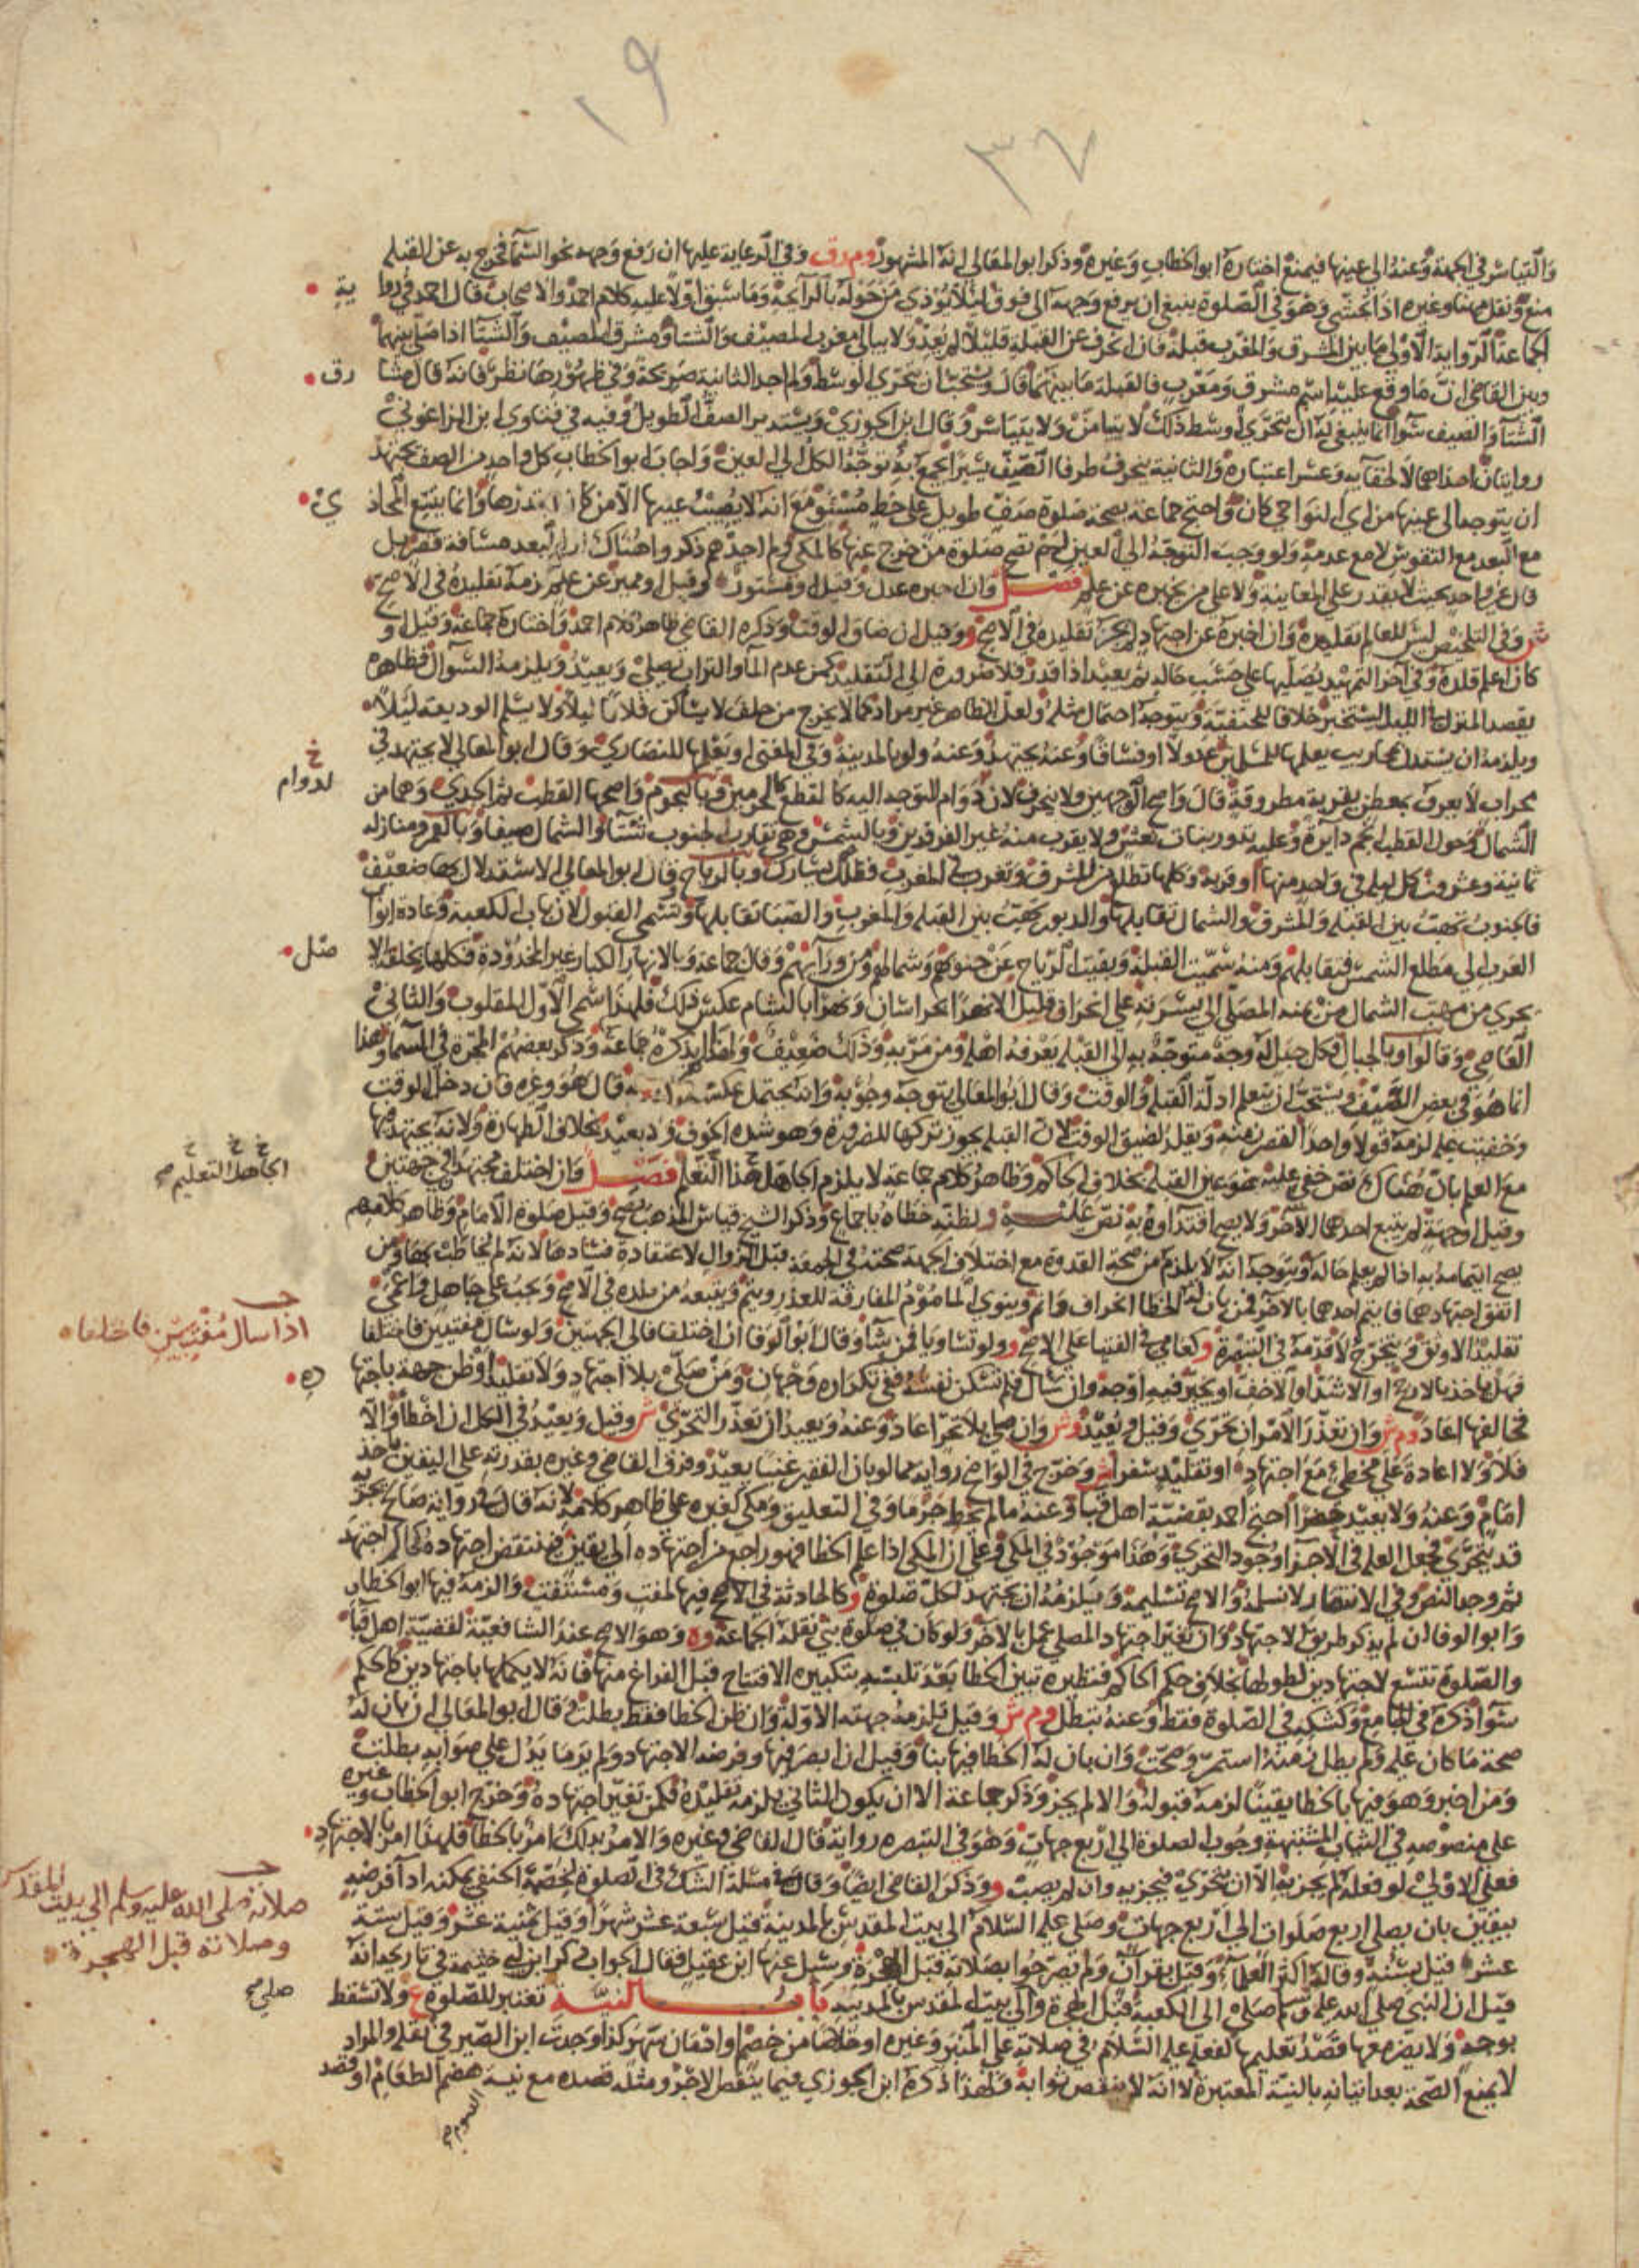 ١٩
٣٧
والتياسر في الجهة وعنه الى عينها فيمنع اختاره ابو الخطاب وغيره وذكر ابو المعالي انه المشهور وم ر ق وفي الرعاية عليها ان رفع وجهه نحو السماء فخرج به عن القبلة
منع ونقل مهنا وغيره اذا تجشى وهو في الصلوة ينبغي ان يرفع وجهه الى فوق لئلا يؤذي من حوله بالرائحة وما سبق اولا عليه كلام احمد والاصحاب قال احمد في روا ية
الجماعة الرواية الاولى ما بين المشرق والمغرب قبلة فان انحرف عن القبلة قليلا لم يعد ولا يبالي مغرب المصيف والشتا ومشرق المصيف والشتا اذا صلى بينهما
وبين القاضي ان ما وقع عليه اسم مشرق ومغرب فالقبلة ما بينهما قال ويستحب ان يتحرى الوسط ولم اجد الثانية صريحة وفي ظهورها نظر فانه قال مشا رق
الشتا والصيف سوا انما ينبغي له ان يتحرى اوسط ذلك لا يتيامن ولا يتياسر وقال ابن الجوزي ويستدير الصف الطويل وفيه في فتاوي ابن الزاغوني
روايتان احداهما لا لخفايه وعسر اعتباره والثانية ينحرف طرفا الصف يسيرا يجمع به توجه الكل الى العين واجاب ابو الخطاب كل واحد من الصف يجتهد
ان يتوجه الى عينها من اي النواحي كان واحتج جماعة بصحة صلوة صف طويل على خط مستو مع انه لا يصيب عينها الا من كان بقدرها وانما يتسع المحاذ ي
مع البعد مع التقوس لا مع عدمه ولو وجب التوجه الى العين لم تصح صلوة من خرج عنها كالمكي ولم احدهم ذكروا هناك البعد مسافة قصر بل
قال غير واحد بحيث لا يقدر على المعاينة ولا على من يخبره عن علم فصل وان اخبره عدل وقيل او مستور وقيل او مميز عن علم لزمه تقليده في الاصح
ش وفي التلخيص ليس للعالم تقليده وان اخبره عن اجتهاد لم يجز تقليده في الاصح و وقيل ان ضاق الوقت وذكره القاضي ظاهر كلام احمد واختاره جماعة وقيل او
كان اعلم قلده وفي اخر التمهيد يصليها على حسب حاله ثم يعيد اذا قدر فلا ضرورة الى التقليد كمن عدم الما والتراب يصلي ويعيد ويلزمه السوال فظاهره
يقصد المنزل في الليل ليستخبر خلافا للحنفية ويتوجه احتمال مثله ولعل الظاهر غير مراد كما لا يخرج من حلف لا يساكن فلانا ليلا ولا يسلم الوديعة ليلا
ويلزمه ان يستدل بمحاريب يعلمها للمسلمين عدولا او فساقا وعنه يجتهد وعنه ولو بالمدينة وفي المغني او يعلمها للنصارى وقال ابو المعالي لا يجتهد في
محراب لا يعرف بمطعن بقرية مطروقة قال واصح الوجهين ولا ينحرف لان دوام التوجه اليه كالقطع كالحرمين وبالنجوم واصحها القطب ثم الجدي وهما من
الشمال وحول القطب انجم دايرة وعليه تدور بنات نعش ولا يقرب منه غير الفرقدين وبالشمس وهي تقارب الجنوب شتا والشمال صيفا وبالقمر ومنازله
ثمانية وعشرون كل ليلة في واحد منها او قربه وكلها تطلع من المشرق وتغرب في المغرب ففلك تبارك وبالرياح قال ابو المعالي الاستدلال بها ضعيف
فالجنوب تهب بين القبلة والمشرق والشمال تقابلها والدبور تهب بين القبلة والمغرب والصبا تقابلها وتسمى القبول لان باب الكعبة وعادة ابواب
العرب الى مطلع الشمس فتقابلهم ومنه سميت القبلة وبقيت الرياح عن جنوبهم وشمالهم ومن ورائهم وقال جماعة وبالانهار الكبار غير المخدودة فكلها بخلقة الا صل
تجري من مهب الشمال من يمنة المصلي الى يسرته على انحراف قليل الا نهرا بخراسان ونهرا بالشام عكس ذلك فلهذا سمي الاول المقلوب والثاني
العاصي وقالوا وبالجبال فكل جبل له وجه متوجه به الى القبلة يعرفه اهله ومن مر به وذلك ضعيف ولهذا لم يذكره جماعة وذكر بعضهم المجرة في السما وهذا
انما هو في بعض الصيف ويستحب ان يتعلم ادلة القبلة والوقت وقال ابو المعالي يتوجه وجوبه وانه يحتمل عكسه قال هو وغيره فان دخل الوقت
وخفيت عليه لزمه قولا واحدا لقصر زمنه ويقلد لضيق الوقت لان القبلة يجوز تركها للضرورة وهو شدة الخوف ولا يعيد بخلاف الطهارة ولانه يجتهد فيها
مع العلم بان هناك نص خفي عليه نحو عين القبلة بخلاف الحاكم وظاهر كلام جماعة لا يلزم الجاهل هذا التعلم فصل وان اختلف مجتهدان في جهتين
وقيل او جهة لم يتبع احدهما الاخر ولا يصح اقتداؤه به نص عليه و لظنه خطاه باجماع وذكر الشيخ قياس المذهب يصح وقيل صلوة الامام وظاهر كلامهم
يصح ايتمامه به اذا لم يعلم حاله ويتوجه انه لا يلزم من صحة القدوة مع اختلاف الجهة صحته في الجمعة قبل الزوال لاعتقاده فسادها لانه لم يخاطب بها ومن
اتفق اجتهادهما فايتم احدهما بالاخر فمن بان له الخطا انحراف واتم وينوي الماموم المفارقة للعذر ويتم ويتبعه من قلده في الاصح ويجب على جاهل واعمى
تقليد الاوثق ويتخرج لا قدمه في الشهرة و كعامي في الفتيا على الاصح و ولو تساويا فمن شا وقال ابو الوفا ان اختلفا فالى الجهتين ولو سال مفتيين فاختلفا
فهل ياخذ بالارجح او الاشد او الاخف او يخير فيه اوجه وان سال فلم تسكن نفسه ففي تكراره وجهان ومن صلى بلا اجتهاد ولا تقليد او ظن جهة باجتها ده
فخالفها اعاد وم ش وان تعذر الامران تحرى وقيل ويعيد وش وان صلى بلا تحر اعاد وعنه ويعيد ان تعذر التحري ش وقيل ويعيد في الكل ان اخطا والا
فلا ولا اعادة على مخطئ مع اجتهاد او تقليد سفرا ش وخرج في الواضح رواية مما لو بان الفقير غنيا يعيد وفرق القاضي وغيره بقدرته على اليقين ياخذ
امام وعنه ولا يعيد حضرا احتج احمد بقضية اهل قبا وعنه ما لم يخط جزما وفي التعليق ومكي كغيره على ظاهر كلامه لانه قال في رواية صالح تجزيه
قد يتحرى فجعل العلم في الاجزا وجود التحري وهذا موجود في المكي وعلى ان المكي اذا علم الخطا فهو راجع من اجتهاده الى يقين فينتقض اجتهاده كحاكم اجتهد
ثم وجد النص وفي الانتصار لا نسلمه والاصح تسليمه ويلزمه ان يجتهد لكل صلوة و كالحادثة في الاصح فيها لمفت ومستفت والزمه فيها ابو الخطاب
وابو الوفا ان لم يذكر طريق الاجتهاد وان تغير اجتهاد المصلي عمل بالاخر ولو كان في صلوة بنى نقله الجماعة وه وهو الاصح عند الشافعية لقضية اهل قبا
والصلوة تتسع لاجتهادين لطولها بخلاف حكم الحاكم فنظيره تبين الخطا بعد تلبسه بتكبيرة الافتتاح قبل الفراغ منها فانه لا يكملها باجتهادين كالحكم
سوا ذكره في الجامع وكشكه في الصلوة فقط وعنه تبطل وم ش وقيل يلزمه جهته الاولة وان ظن الخطا فقط بطلت وقال ابو المعالي ان بان له
صحة ما كان عليه ولم يطل زمنه استمر وصحت وان بان له الخطا فيها بنا وقيل ان ابصر فيها وفرضه الاجتهاد ولم ير ما يدل على صوابه بطلت
ومن اخبر وهو فيها بالخطا يقينا لزمه قبوله والا لم يجز وذكر جماعة الا ان يكون الثاني يلزمه تقليده فكمن تغير اجتهاده وخرج ابو الخطاب وغيره
على منصوصه في الثياب المشتبهة وجوب الصلوة الى اربع جهات وهو في التبصرة رواية قال القاضي وغيره والامر بذلك امر بالخطا فلهذا امر بالاجتهاد
فعلى الاولى لو فعله لم يجزيه الا ان يتحرى فيجزيه وان لم يصب و وذكر القاضي ايضا وقال في مسئلة الشك في الصلوة لخصمه الحنفي يمكنه ادا فرضه
بيقين بان يصلي اربع صلوات الى اربع جهات وصلى عليه السلام الى بيت المقدس بالمدينة قيل سبعة عشر شهرا وقيل ثمنية عشر وقيل ستة
عشر قيل بسنة وقاله اكثر العلما وقيل بقران ولم تصرحوا بصلاته قبل الهجرة وسئل عنها ابن عقيل فقال الجواب ذكر ابن ابي خثيمة في تاريخه انه
قيل ان النبي صلى الله عليه وسلم صلى الى الكعبة قبل الهجرة والى بيت المقدس بالمدينة باب النية تعتبر للصلوة ع ولا تسقط
بوجه ولا يضر معها قصد تعليمها لفعله عليه السلام في صلاته على المنبر وغيره او خلاصا من خصم او ادمان سهر كذا وجدت ابن الصيرفي نقله والمراد
لا يمنع الصحة بعد اتيانه بالنية المعتبرة لا انه لا ينقص ثوابه ولهذا ذكره ابن الجوزي فيما ينقص الاجر ومثله قصده مع نية هضم الطعام او قصد
الصوم
خ
لدوام
خ خ خ
الجاهل التعليم صح
اذا سال مفتيين فاختلفا
صلاته صلى الله عليه وسلم الى بيت المقدس
وصلاته قبل الهجرة
صلى صح